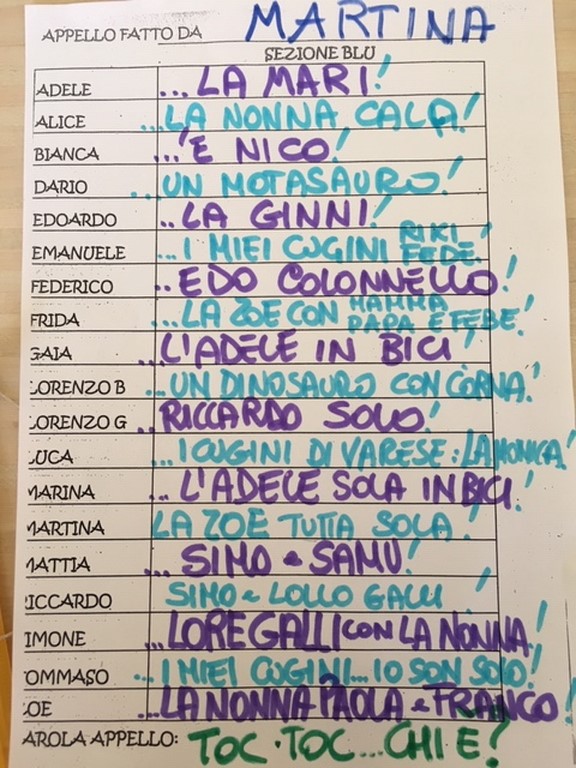 APPELLO FATTO DA MARTINA
SEZIONE BLU
ADELE ...LA MARI!
ALICE ...LA NONNA CALA!
BIANCA ...'E NICO!
DARIO ...UN MOTASAURO!
EDOARDO ...LA GINNI!
EMANUELE ...I MIEI CUGINI RIKI FEDE!
FEDERICO ..EDO COLONNELLO!
FRIDA ...LA ZOE CON MAMMA PAPA E FEBE!
GAIA ...L'ADELE IN BICI!
LORENZO B ...UN DINOSAURO CON CORNA!
LORENZO G ..RICCARDO SOLO!
LUCA ...I CUGINI DI VARESE: LA MONICA!
MARINA ...L'ADELE SOLA IN BICI!
MARTINA LA ZOE TUTTA SOLA!
MATTIA ...SIMO e SAMU!
ICCARDO SIMO e LOLLO GALLI!
IMONE ...LORE GALLI CON LA NONNA!
OMMASO ...I MIEI CUGINI...IO SON SOLO!
OE ...LA NONNA PAOLA e FRANCO!
AROLA APPELLO: TOC·TOC...CHI E?